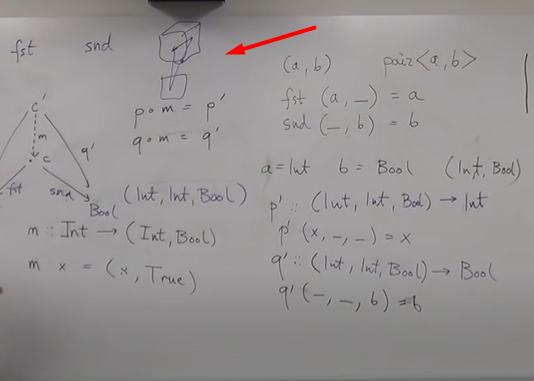 fst snd
p∘m = p'
q∘m = q'
c'
m
q'
c
fst snd
Bool
(Int, Int, Bool)
m :: Int → (Int, Bool)
m x = (x, True)
(a, b) pair<a, b>
fst (a, _) = a
snd (_, b) = b
a = Int b = Bool (Int, Bool)
p' :: (Int, Int, Bool) → Int
p' (x, _, _) = x
q' :: (Int, Int, Bool) → Bool
q' (_, _, b) = b